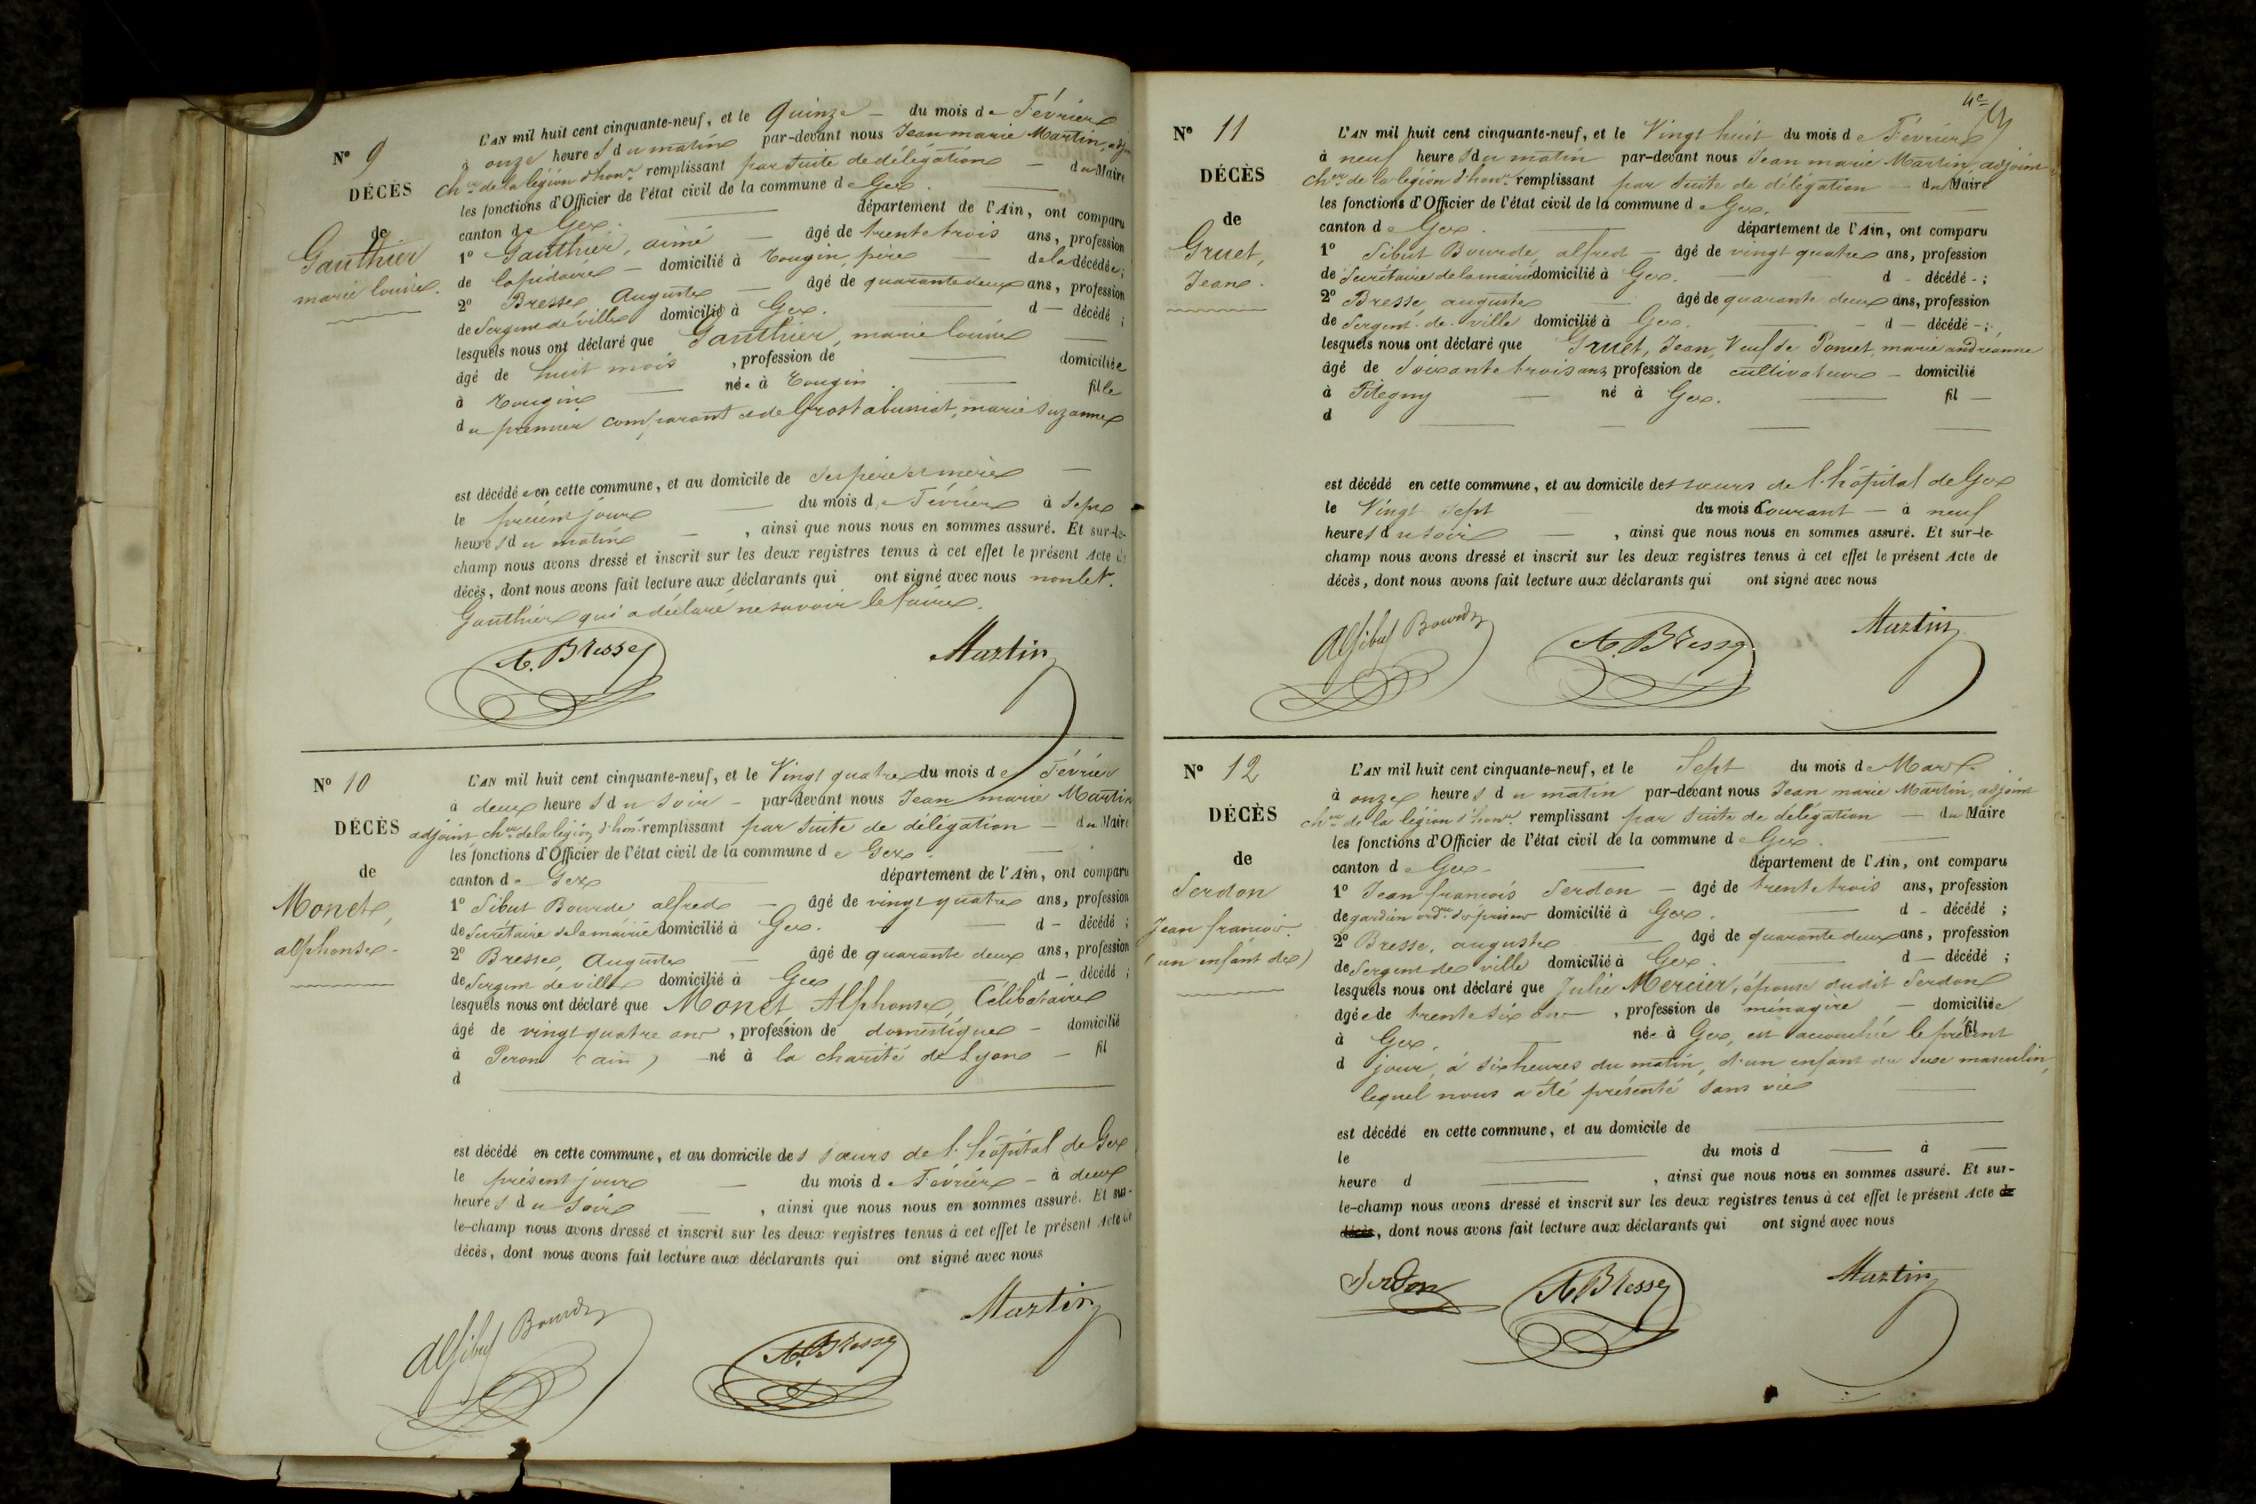 N° 9
DÉCÈS
de
Gauthier
marie louise.
L'AN mil huit cent cinquante-neuf, et le Quinze du mois de Février
à onze heures du matin par-devant nous Jean marie Martin, adjt
chr de la légion d'honr remplissant par suite de délégation du Maire
les fonctions d'Officier de l'état civil de la commune de Gex.
canton de Gex. département de l'Ain, ont comparu
1° Gauthier, aimé âgé de trente trois ans, profession
de lapidaire domicilié à Tougin, père de la décédée;
2° Bresse, Auguste âgé de quarante deux ans, profession
de Sergent de ville domicilié à Gex. d décédé;
lesquels nous ont déclaré que Gauthier, marie louise
âgé de huit mois, profession de domiciliée
à Tougin née à Tougin. fille
du premier comparant et de Grostabussiat, marie suzanne
est décédée en cette commune, et au domicile de ses père et mère
le présent jour du mois de Février à Sept
heures du matin, ainsi que nous nous en sommes assuré. Et sur-le-
champ nous avons dressé et inscrit sur les deux registres tenus à cet effet le présent Acte de
décès, dont nous avons fait lecture aux déclarants qui ont signé avec nous non let.
Gauthier qui a déclaré ne savoir le faire.
A. Bresse
Martin
N° 10
DÉCÈS
de
Monet,
alphonse
L'AN mil huit cent cinquante-neuf, et le Vingt quatre du mois de Février
à deux heures du soir par-devant nous Jean marie Martin
adjoint, chr de la légion d'honr remplissant par suite de délégation du Maire
les fonctions d'Officier de l'état civil de la commune de Gex.
canton de Gex département de l'Ain, ont comparu
1° Sibut Bourde alfred âgé de vingt quatre ans, profession
de Secrétaire de la mairie domicilié à Gex. d décédé;
2° Bresse, Auguste âgé de quarante deux ans, profession
de Sergent de ville domicilié à Gex d décédé;
lesquels nous ont déclaré que Monet, Alphonse, Célibataire
âgé de vingt quatre ans, profession de domestique domicilié
à Peron (ain) né à la charité de Lyon fil
d
est décédé en cette commune, et au domicile des sœurs de l'hôpital de Gex
le présent jour du mois de Février à deux
heures du Soir, ainsi que nous nous en sommes assuré. Et sur-
le-champ nous avons dressé et inscrit sur les deux registres tenus à cet effet le présent Acte de
décès, dont nous avons fait lecture aux déclarants qui ont signé avec nous
Al Sibut Bourde
A. Bresse
Martin
4e
N° 11
DÉCÈS
de
Gruet,
Jean.
L'AN mil huit cent cinquante-neuf, et le Vingt huit du mois de Février
à neuf heures du matin par-devant nous Jean marie Martin, adjoint
chr de la légion d'honr remplissant par suite de délégation du Maire
les fonctions d'Officier de l'état civil de la commune de Gex.
canton de Gex. département de l'Ain, ont comparu
1° Sibut Bourde, alfred âgé de vingt quatre ans, profession
de Secrétaire de la mairie domicilié à Gex. d décédé;
2° Bresse, auguste âgé de quarante deux ans, profession
de Sergent de ville domicilié à Gex. d décédé;
lesquels nous ont déclaré que Gruet, Jean, Veuf de Poncet, marie andréanne
âgé de Soixante trois ans, profession de cultivateur domicilié
à Pitegny né à Gex. fil
d
est décédé en cette commune, et au domicile des sœurs de l'hôpital de Gex
le Vingt sept du mois Courant à neuf
heures du soir, ainsi que nous nous en sommes assuré. Et sur-le-
champ nous avons dressé et inscrit sur les deux registres tenus à cet effet le présent Acte de
décès, dont nous avons fait lecture aux déclarants qui ont signé avec nous
Al Sibut Bourde
A. Bresse
Martin
N° 12
DÉCÈS
de
Serdon
Jean francois.
(un enfant de)
L'AN mil huit cent cinquante-neuf, et le Sept du mois de Mars.
à onze heures du matin par-devant nous Jean marie Martin, adjoint
chr de la légion d'honr remplissant par suite de délégation du Maire
les fonctions d'Officier de l'état civil de la commune de Gex.
canton de Gex département de l'Ain, ont comparu
1° Jean francois Serdon âgé de trente trois ans, profession
de gardien ordre des prisons domicilié à Gex. d décédé;
2° Bresse, auguste âgé de quarante deux ans, profession
de Sergent de ville domicilié à Gex. d décédé;
lesquels nous ont déclaré que Julie Mercier, épouse dudit Serdon
âgée de trente six ans, profession de ménagère domiciliée
à Gex. née à Gex, est accouchée le présent
d jour, à six heures du matin, d'un enfant du sexe masculin,
lequel nous a été présenté sans vie
est décédé en cette commune, et au domicile de
le du mois d à
heure d, ainsi que nous nous en sommes assuré. Et sur-
le-champ nous avons dressé et inscrit sur les deux registres tenus à cet effet le présent Acte de
décès, dont nous avons fait lecture aux déclarants qui ont signé avec nous
Serdon
A. Bresse
Martin